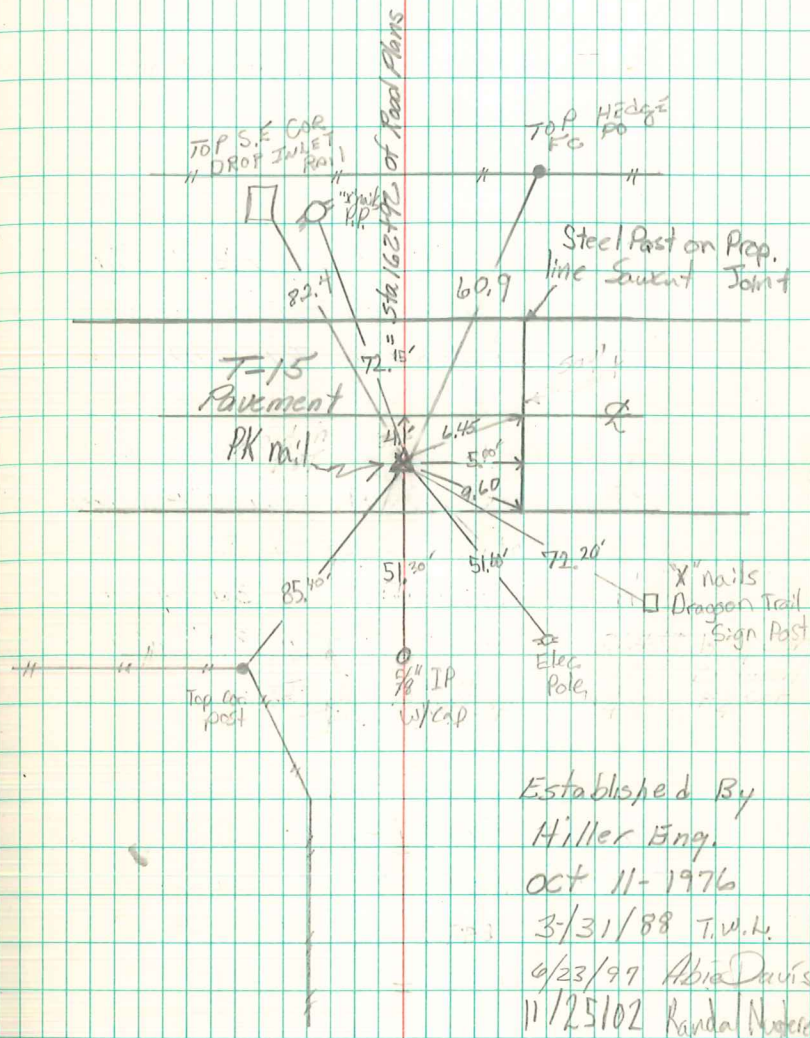 = Sta 162+92 of Road Plans
TOP S.E COR
DROP INLET
RAIL
"X" nails
P.P.
TOP HEdgE
FC PO
Steel Post on Prop.
line Sawcut Joint
82.4
72.15'
60.9
T-15
Pavement
PK nail
4.1'
6.45
5.00'
9.60
85.40'
51.30'
51.60'
72.20'
"X" nails
Draggon Trail
Sign Post
Elec
Pole,
5/8" IP
w/cap
Top Cor.
post
Established By
Hiller Eng.
oct 11-1976
3/31/88 T.W.L.
6/23/97 Abie Davis
11/25/02 Randal